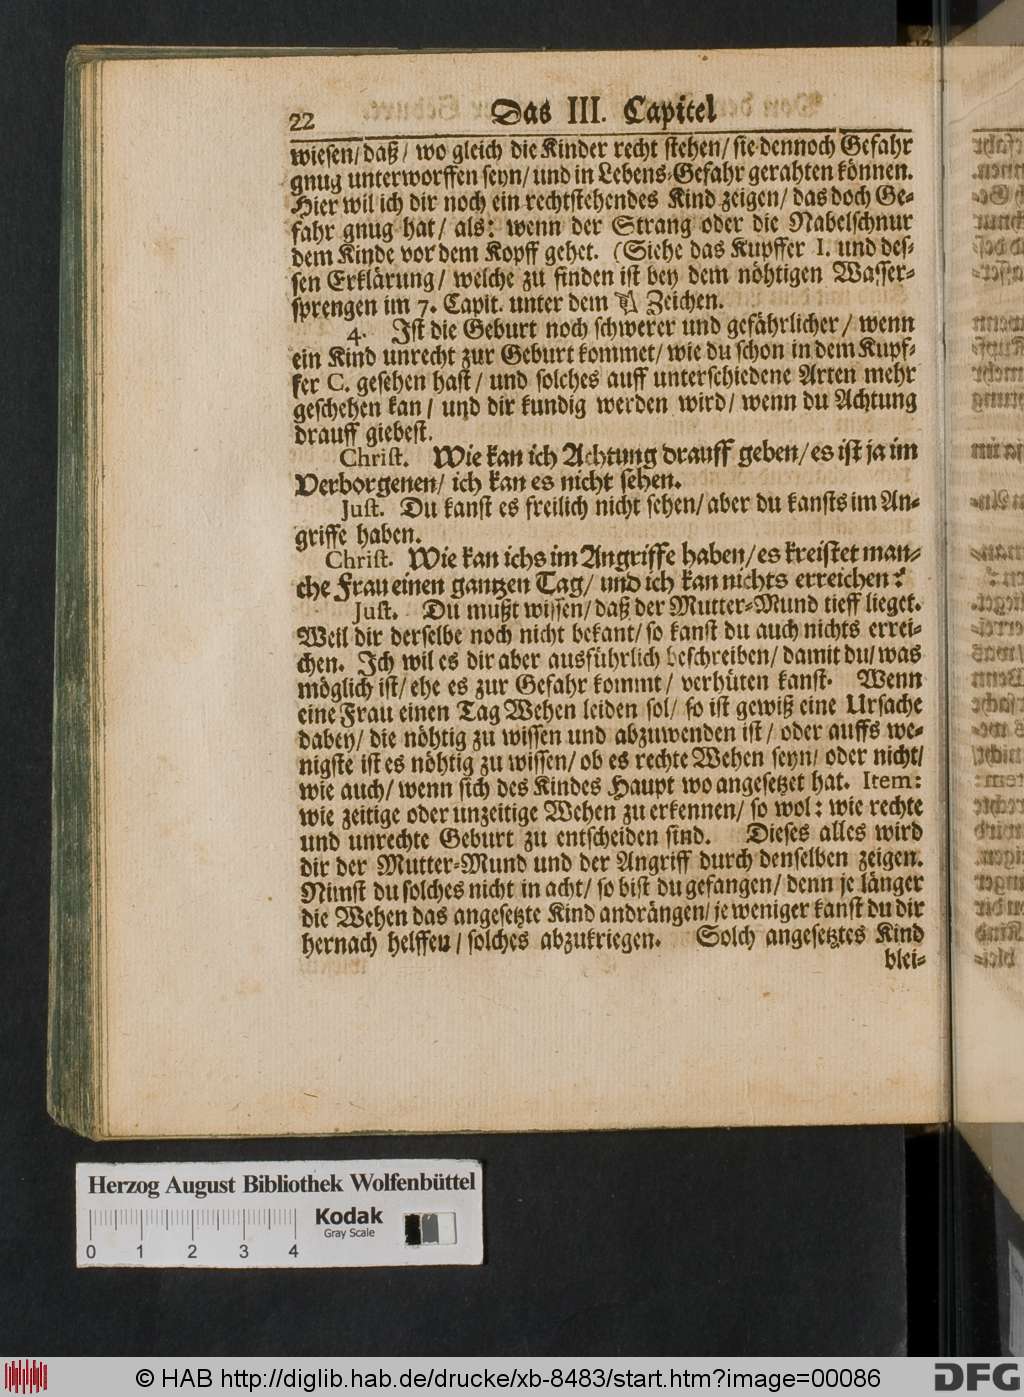 22 Das III. Capitel
wiesen/ daß/ wo gleich die Kinder recht stehen/ sie dennoch Gefahr
gnug unterworffen seyn/ und in Lebens-Gefahr gerahten können.
Hier wil ich dir noch ein rechtstehendes Kind zeigen/ das doch Ge-
fahr gnug hat/ als: wenn der Strang oder die Nabelschnur
dem Kinde vor dem Kopff gehet. (Siehe das Kupffer I. und des-
sen Erklärung/ welche zu finden ist bey dem nöhtigen Wasser-
sprengen im 7. Capit. unter dem Zeichen.
4. Ist die Geburt noch schwerer und gefährlicher/ wenn
ein Kind unrecht zur Geburt kommet/ wie du schon in dem Kupf-
fer C. gesehen hast/ und solches auff unterschiedene Arten mehr
geschehen kan/ und dir kundig werden wird/ wenn du Achtung
drauff giebest.
Christ. Wie kan ich Achtung drauff geben/ es ist ja im
Verborgenen/ ich kan es nicht sehen.
Just. Du kanst es freilich nicht sehen/ aber du kansts im An-
griffe haben.
Christ. Wie kan ichs im Angriffe haben/ es kreistet man-
che Frau einen gantzen Tag/ und ich kan nichts erreichen?
Just. Du mußt wissen/ daß der Mutter-Mund tieff lieget.
Weil dir derselbe noch nicht bekant/ so kanst du auch nichts errei-
chen. Ich wil es dir aber ausführlich beschreiben/ damit du/ was
möglich ist/ ehe es zur Gefahr kommt/ verhüten kanst. Wenn
eine Frau einen Tag Wehen leiden sol/ so ist gewiß eine Ursache
dabey/ die nöhtig zu wissen und abzuwenden ist/ oder auffs we-
nigste ist es nöhtig zu wissen/ ob es rechte Wehen seyn/ oder nicht/
wie auch/ wenn sich des Kindes Haupt wo angesetzet hat. Item:
wie zeitige oder unzeitige Wehen zu erkennen/ so wol: wie rechte
und unrechte Geburt zu entscheiden sind. Dieses alles wird
dir der Mutter-Mund und der Angriff durch denselben zeigen.
Nimst du solches nicht in acht/ so bist du gefangen/ denn je länger
die Wehen das angesetzte Kind andrängen/ je weniger kanst du dir
hernach helffen/ solches abzukriegen. Solch angesetztes Kind
blei-
Herzog August Bibliothek Wolfenbüttel
Kodak
Gray Scale
0 1 2 3 4
© HAB http://diglib.hab.de/drucke/xb-8483/start.htm?image=00086
DFG